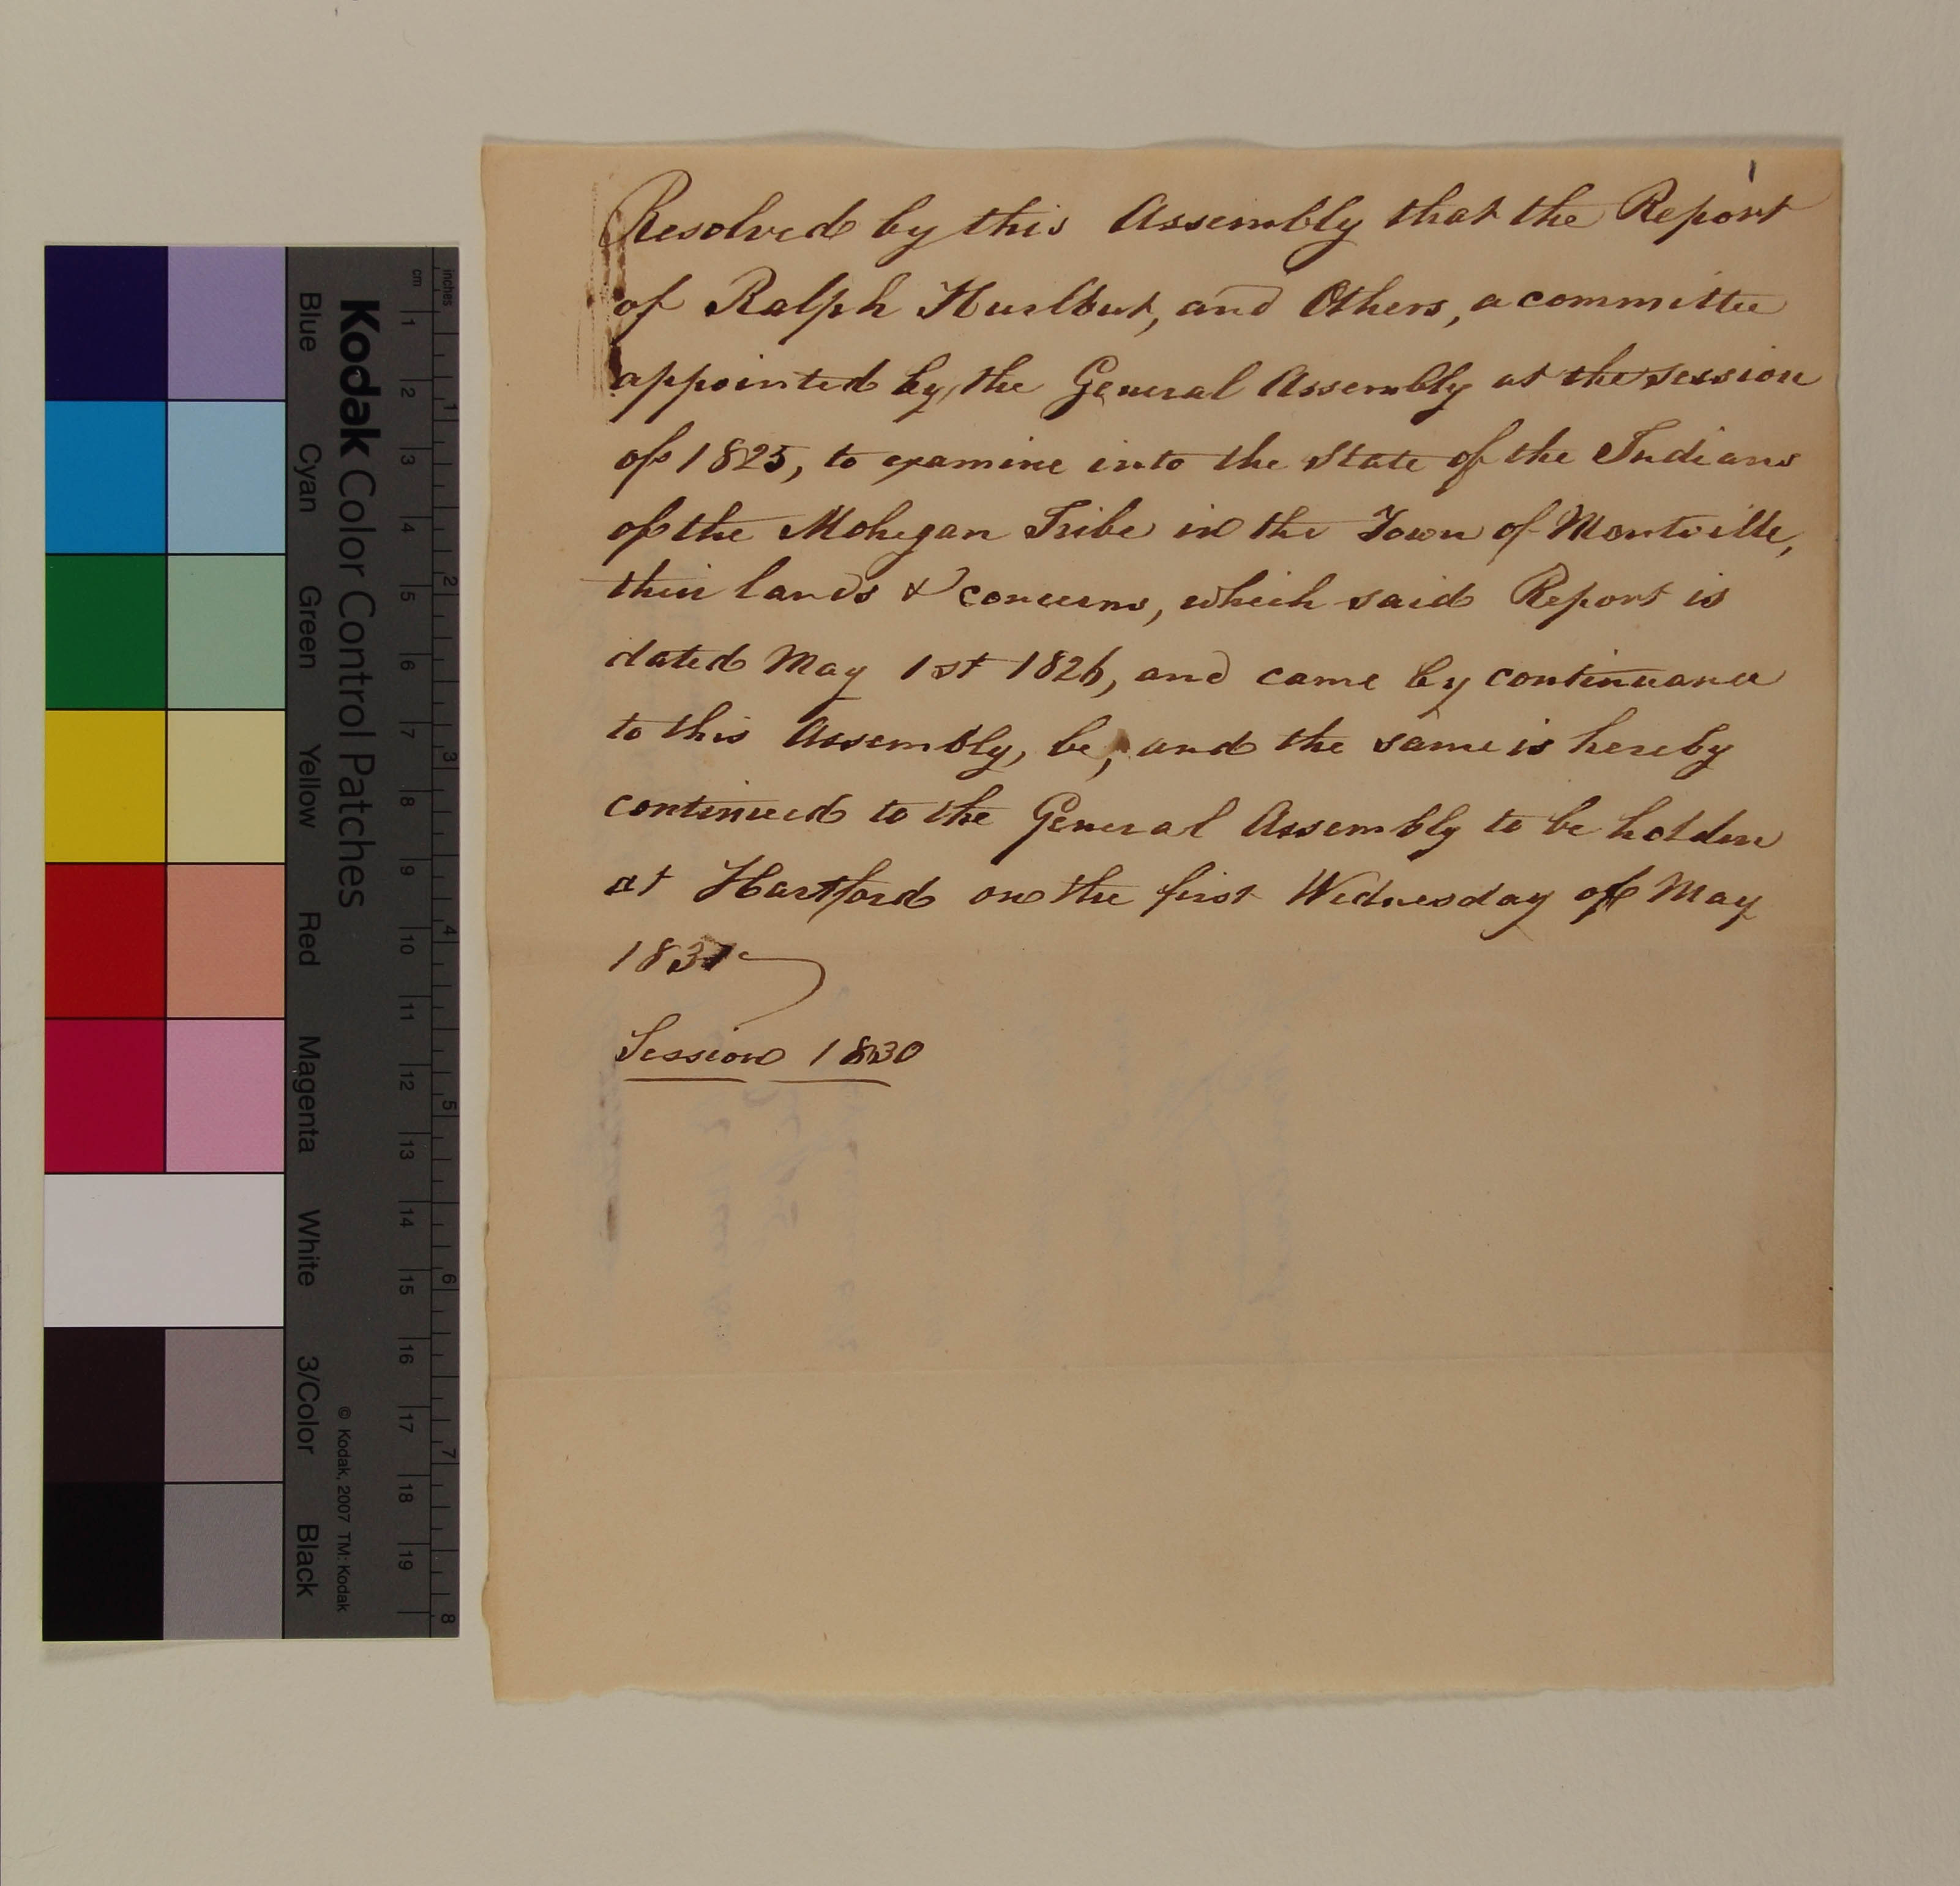 Resolved by this Assembly that the Report
of Ralph Hurlbut, and Others, a committee
appointed by the General Assembly at the session
of 1825, to examine into the State of the Indians
of the Mohegan Tribe in the Town of Montville,
their lands & concerns, which said Report is
dated May 1st 1826, and came by continuance
to this Assembly, be, and the same is hereby
continued to the General Assembly to be holden
at Hartford on the first Wednesday of May
1831
Session 1830
Kodak Color Control Patches
© Kodak, 2007 TM: Kodak
Blue Cyan Green Yellow Red Magenta White 3/Color Black
cm 1 2 3 4 5 6 7 8 9 10 11 12 13 14 15 16 17 18 19
inches 1 2 3 4 5 6 7 8